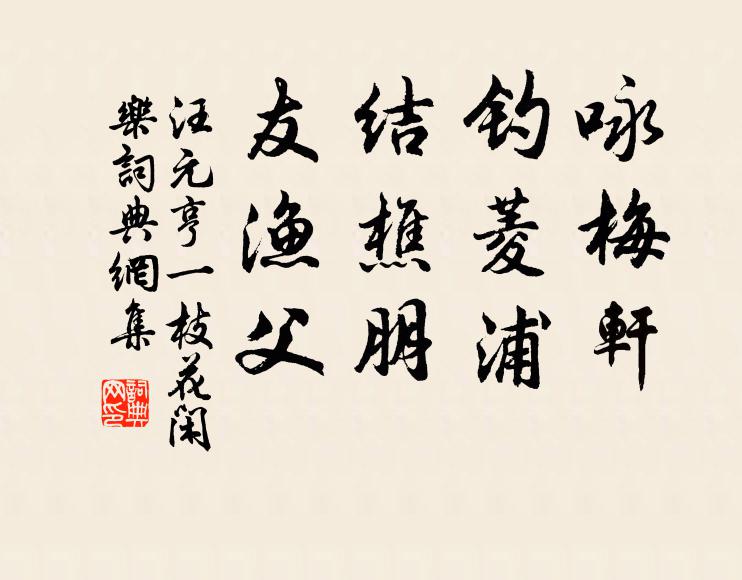 咏梅軒
釣菱浦
结樵朋
友漁父
汪元亨一枝花閑
樂詞典網集
詞典
网印